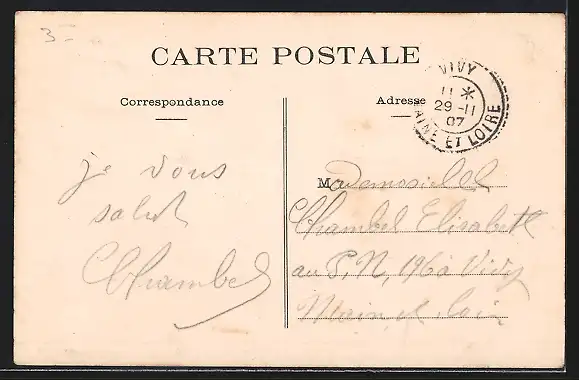 3-
CARTE POSTALE
VIVY
11 *
29-11
07
AINE ET LOIRE
Correspondance
Adresse
je vous
salut
Chambel
Mademoiselle
Chambel Elisabeth
au P, N, 196 à Vivy
Main et Loir